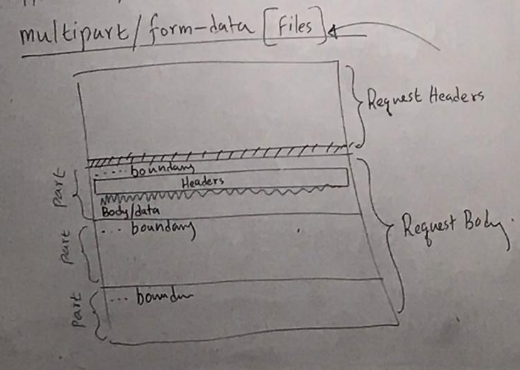 multipart/form-data [Files]
Request Headers
..... boundary
Headers
Body/data
... boundary
... boundar
part
part
part
Request Body.